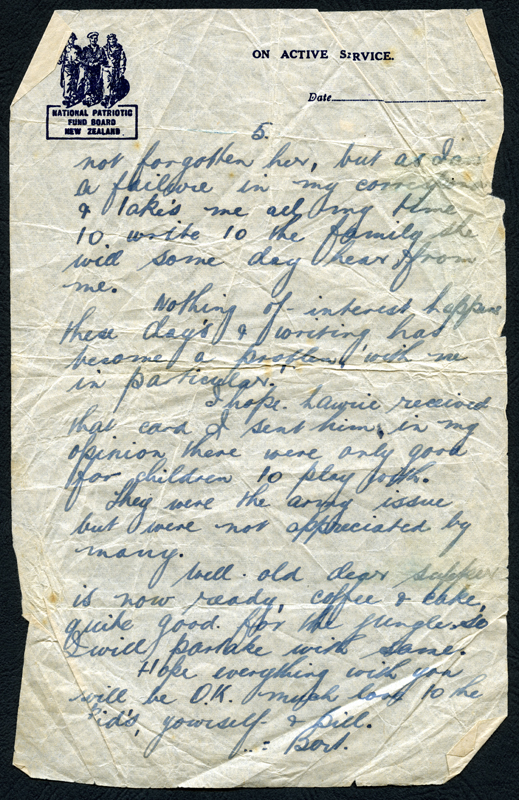 ON ACTIVE SERVICE.
Date
NATIONAL PATRIOTIC
FUND BOARD
NEW ZEALAND
5.
not forgotten her, but as I am
a failure in my
& Take's me all my time
to write to the family she
will some day hear from
me.
Nothing of interest happens
these day's & writing has
become a problem, with me
in particular.
I hope Lawrie received
that card I sent him, in my
opinion there were only good
for children to play with.
They were the army issue
but were not appreciated by
many.
Well old dear supper
is now ready, coffee & cake,
quite good for the jungle. So
I will partake with same.
Hope everything with you
will be O.K. much love to the
Kid's, yourself & Bill.
Bort.